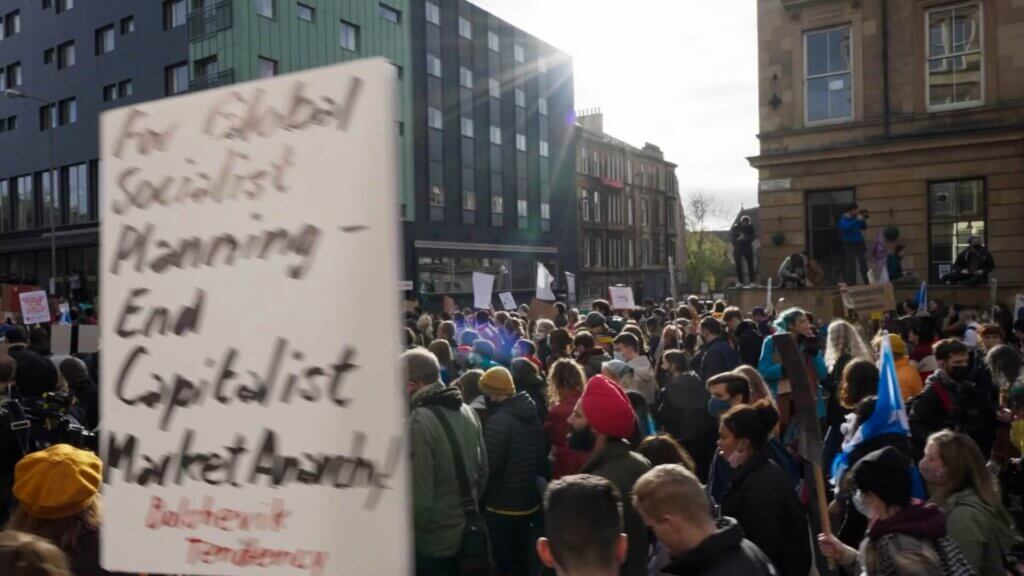 For Global
Socialist
Planning -
End
Capitalist
Market Anarchy!
Bolshewik
Tendency